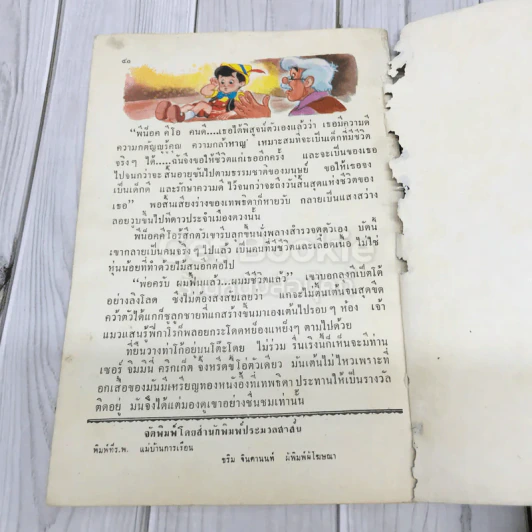 ๔๑
"พีน็อคคีโอ คนดี....เธอได้พิสูจน์ตัวเองแล้วว่า เธอมีความดี
ความกตัญญูรู้คุณ ความกล้าหาญ เหมาะสมที่จะเป็นเด็กที่มีชีวิต
จริงๆ ได้.....ฉันจึงขอให้ชีวิตแก่เธออีกครั้ง และจะเป็นของเธอ
ไปจนกว่าจะสิ้นอายุขัยไปตามธรรมชาติของมนุษย์ ขอให้เธอจง
เป็นเด็กดี และรักษาความดีไว้จนกว่าจะถึงวันสิ้นสุดแห่งชีวิตของ
เธอ" พอสิ้นเสียงร่างของเทพธิดาก็หายวับ กลายเป็นแสงสว่าง
ลอยวบขึ้นไปที่ดาวประจำเมืองดวงนั้น
พีน็อคคีโอรู้สึกตัวเขารีบลุกขึ้นนั่งพลางสำรวจดูตัวเอง บัดนี้
เขากลายเป็นคนจริงๆ ไปแล้ว เป็นคนที่มีชีวิตและเลือดเนื้อ ไม่ใช่
หุ่นน้อยที่ทำด้วยไม้สนอีกต่อไป
"พ่อครับ ผมฟื้นแล้ว...ผมมีชีวิตแล้ว" เขาบอกลุงกีเป็ตโต้
อย่างลิงโลด ซึ่งไม่ต้องสงสัยเลยว่า แกจะไม่ตื่นเต้นจนสุดขีด
คว้าตัวได้แกก็ชูลูกชายที่แกสร้างขึ้นมาเองเต้นไปรอบๆ ห้อง เจ้า
แมวแสนรู้ฟิกาโร่ก็พลอยกระโดดหย็องแหย็งๆ ตามไปด้วย
ที่ยืนวางท่าโก้อยู่บนโต๊ะโดย ไม่ร่วม รื่นเริงกี่เก็เห็นจะมีท่าน
เซอร์ จิมมินี่ ครกเก็ต จิ้งหรีดซีโอตัวเดียว มันเต้นไม่ไหวเพราะที่
อกเสื้อของมันมีเหรียญทองหนังอึ้งที่เทพธิดา ประทานให้เป็นรางวัล
ติดอยู่ มันจึงได้แต่มองดูเขาอย่างชื่นชมเท่านั้น
จัดพิมพ์โดยสำนักพิมพ์ประมวลสาส์น
พิมพ์ที่ร.พ. แม่บ้านการเรือน
ชริม จินดานนท์ ผู้พิมพ์ผู้โฆษณา